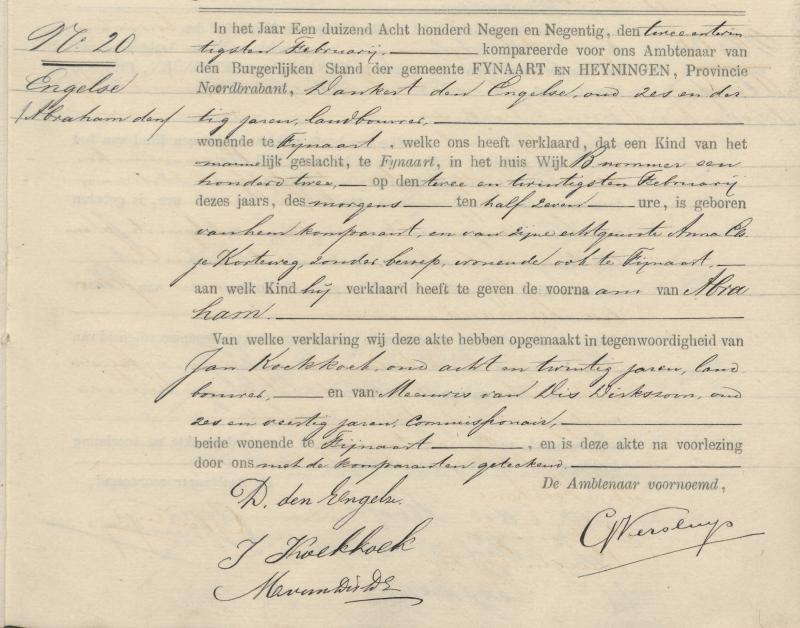 No. 20
Engelse
Abraham den
In het Jaar Een duizend Acht honderd Negen en Negentig, den twee en twin
tigsten Februarij, kompareerde voor ons Ambtenaar van
den Burgerlijken Stand der gemeente FYNAART EN HEYNINGEN, Provincie
Noordbrabant, Dankert den Engelse, oud zes en der
tig jaren, landbouwer,
wonende te Fijnaart, welke ons heeft verklaard, dat een Kind van het
mannelijk geslacht, te Fynaart, in het huis Wijk B nommer een
honderd twee, op den twee en twintigsten Februarij
dezes jaars, des morgens ten half zeven ure, is geboren
van hem komparant, en van zijne echtgenoote Anna
je Korteweg, zonder beroep, wonende ook te Fijnaart,
aan welk Kind hij verklaard heeft te geven de voornaam van Abra
ham.
Van welke verklaring wij deze akte hebben opgemaakt in tegenwoordigheid van
Jan Koekkoek, oud acht en twintig jaren, land
bouwer, en van Meeuwis van Dis Dirkszoon, oud
zes en veertig jaren, commissionair,
beide wonende te Fijnaart, en is deze akte na voorlezing
door ons met de komparanten geteekend.
De Ambtenaar voornoemd,
D. den Engelse.
J Koekkoek
C Versluys
M van Dis Dz